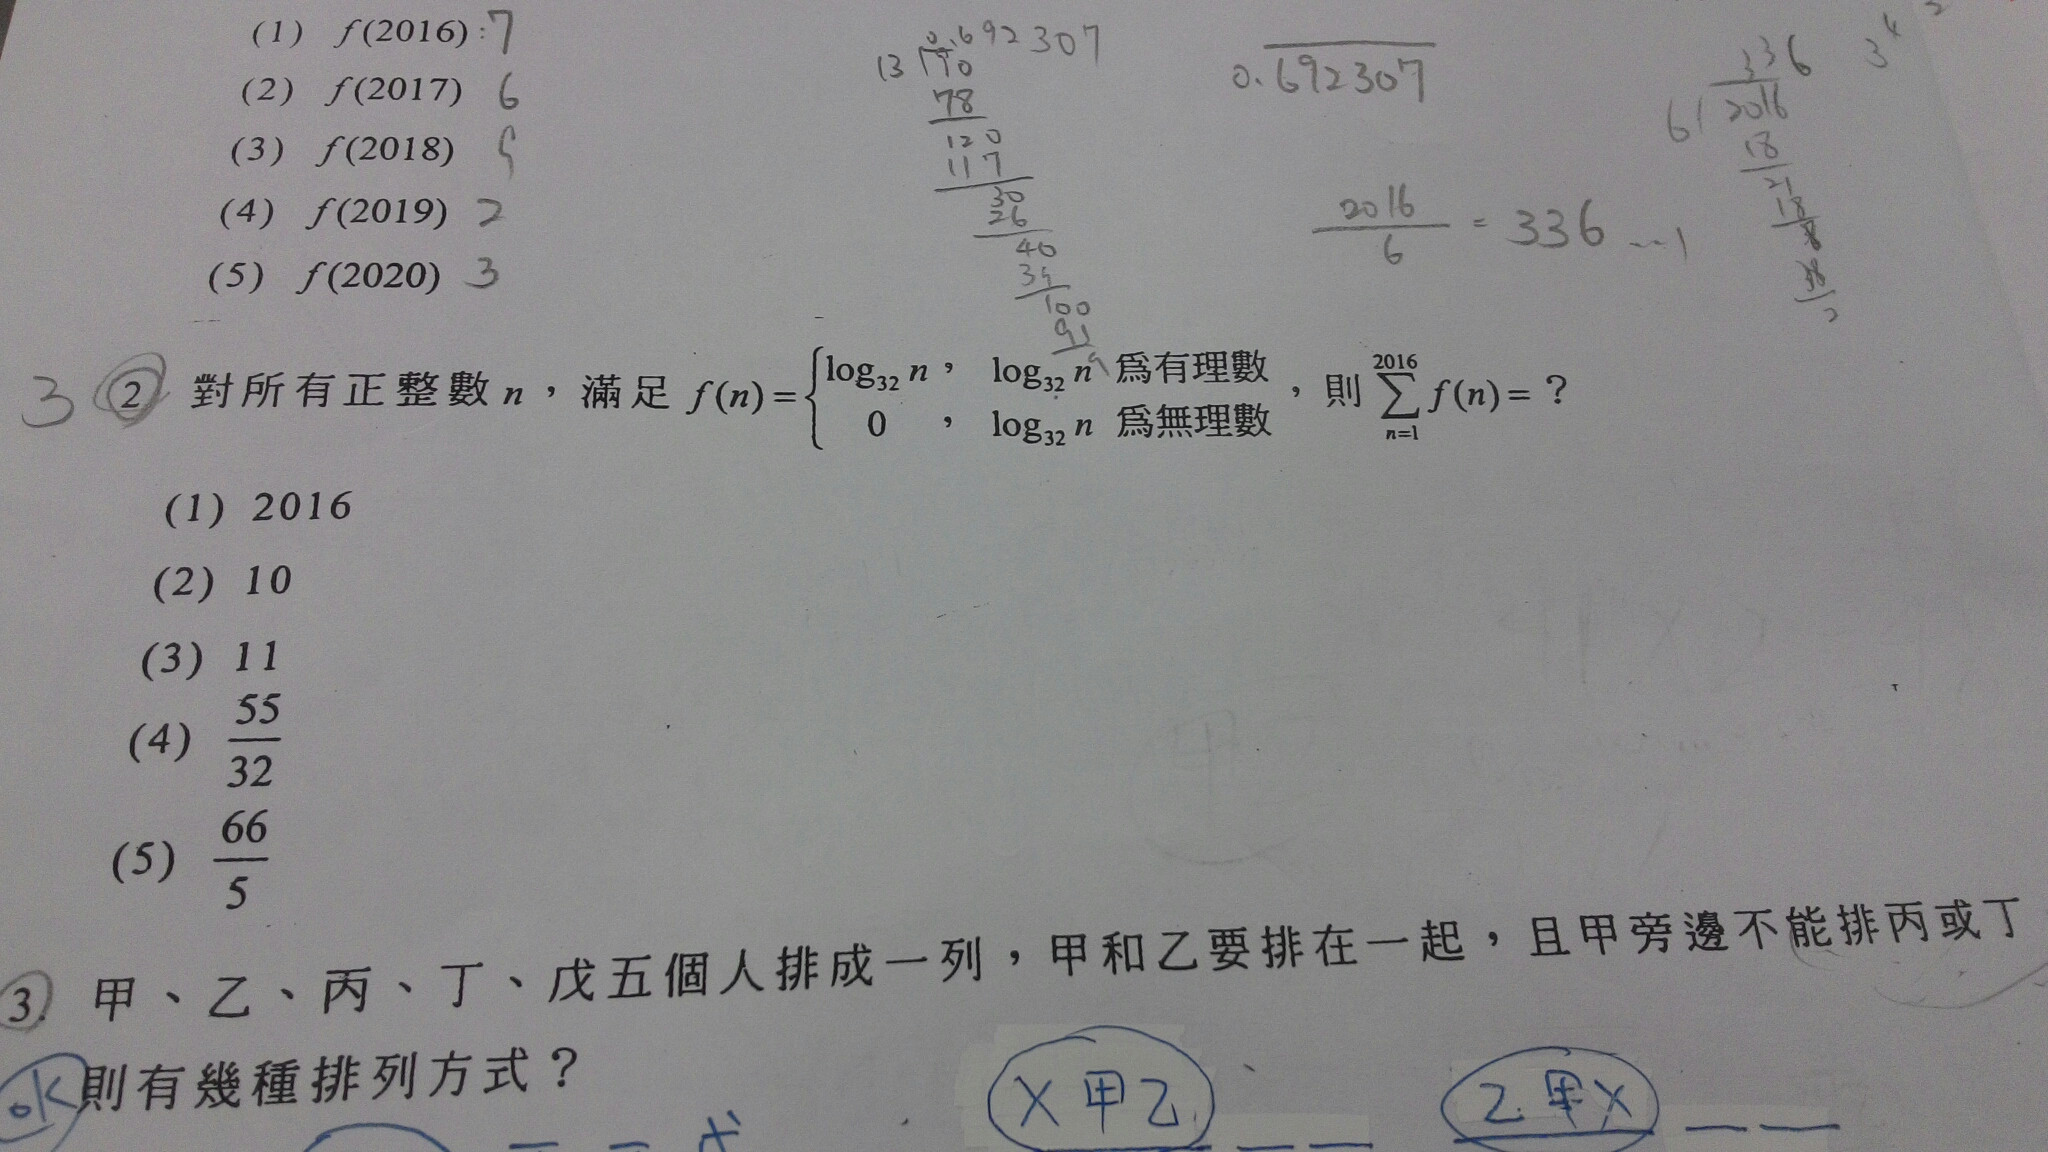 (1) f(2016) : 7
(2) f(2017) 6
(3) f(2018)
(4) f(2019) 2
(5) f(2020) 3
0.692307
13
10
78
120
117
30
26
40
39
100
91
9
0.692307
2016/6 = 336 ...1
336
6 2016
18
21
18
3
3 ② 對所有正整數 n，滿足 f(n) = { log₃₂ n， log₃₂ n 為有理數
0 ， log₃₂ n 為無理數 ，則 ∑_{n=1}^{2016} f(n) = ？
(1) 2016
(2) 10
(3) 11
(4) 55/32
(5) 66/5
3. 甲、乙、丙、丁、戊五個人排成一列，甲和乙要排在一起，且甲旁邊不能排丙或丁
ok 則有幾種排列方式？
X 甲乙
乙甲X